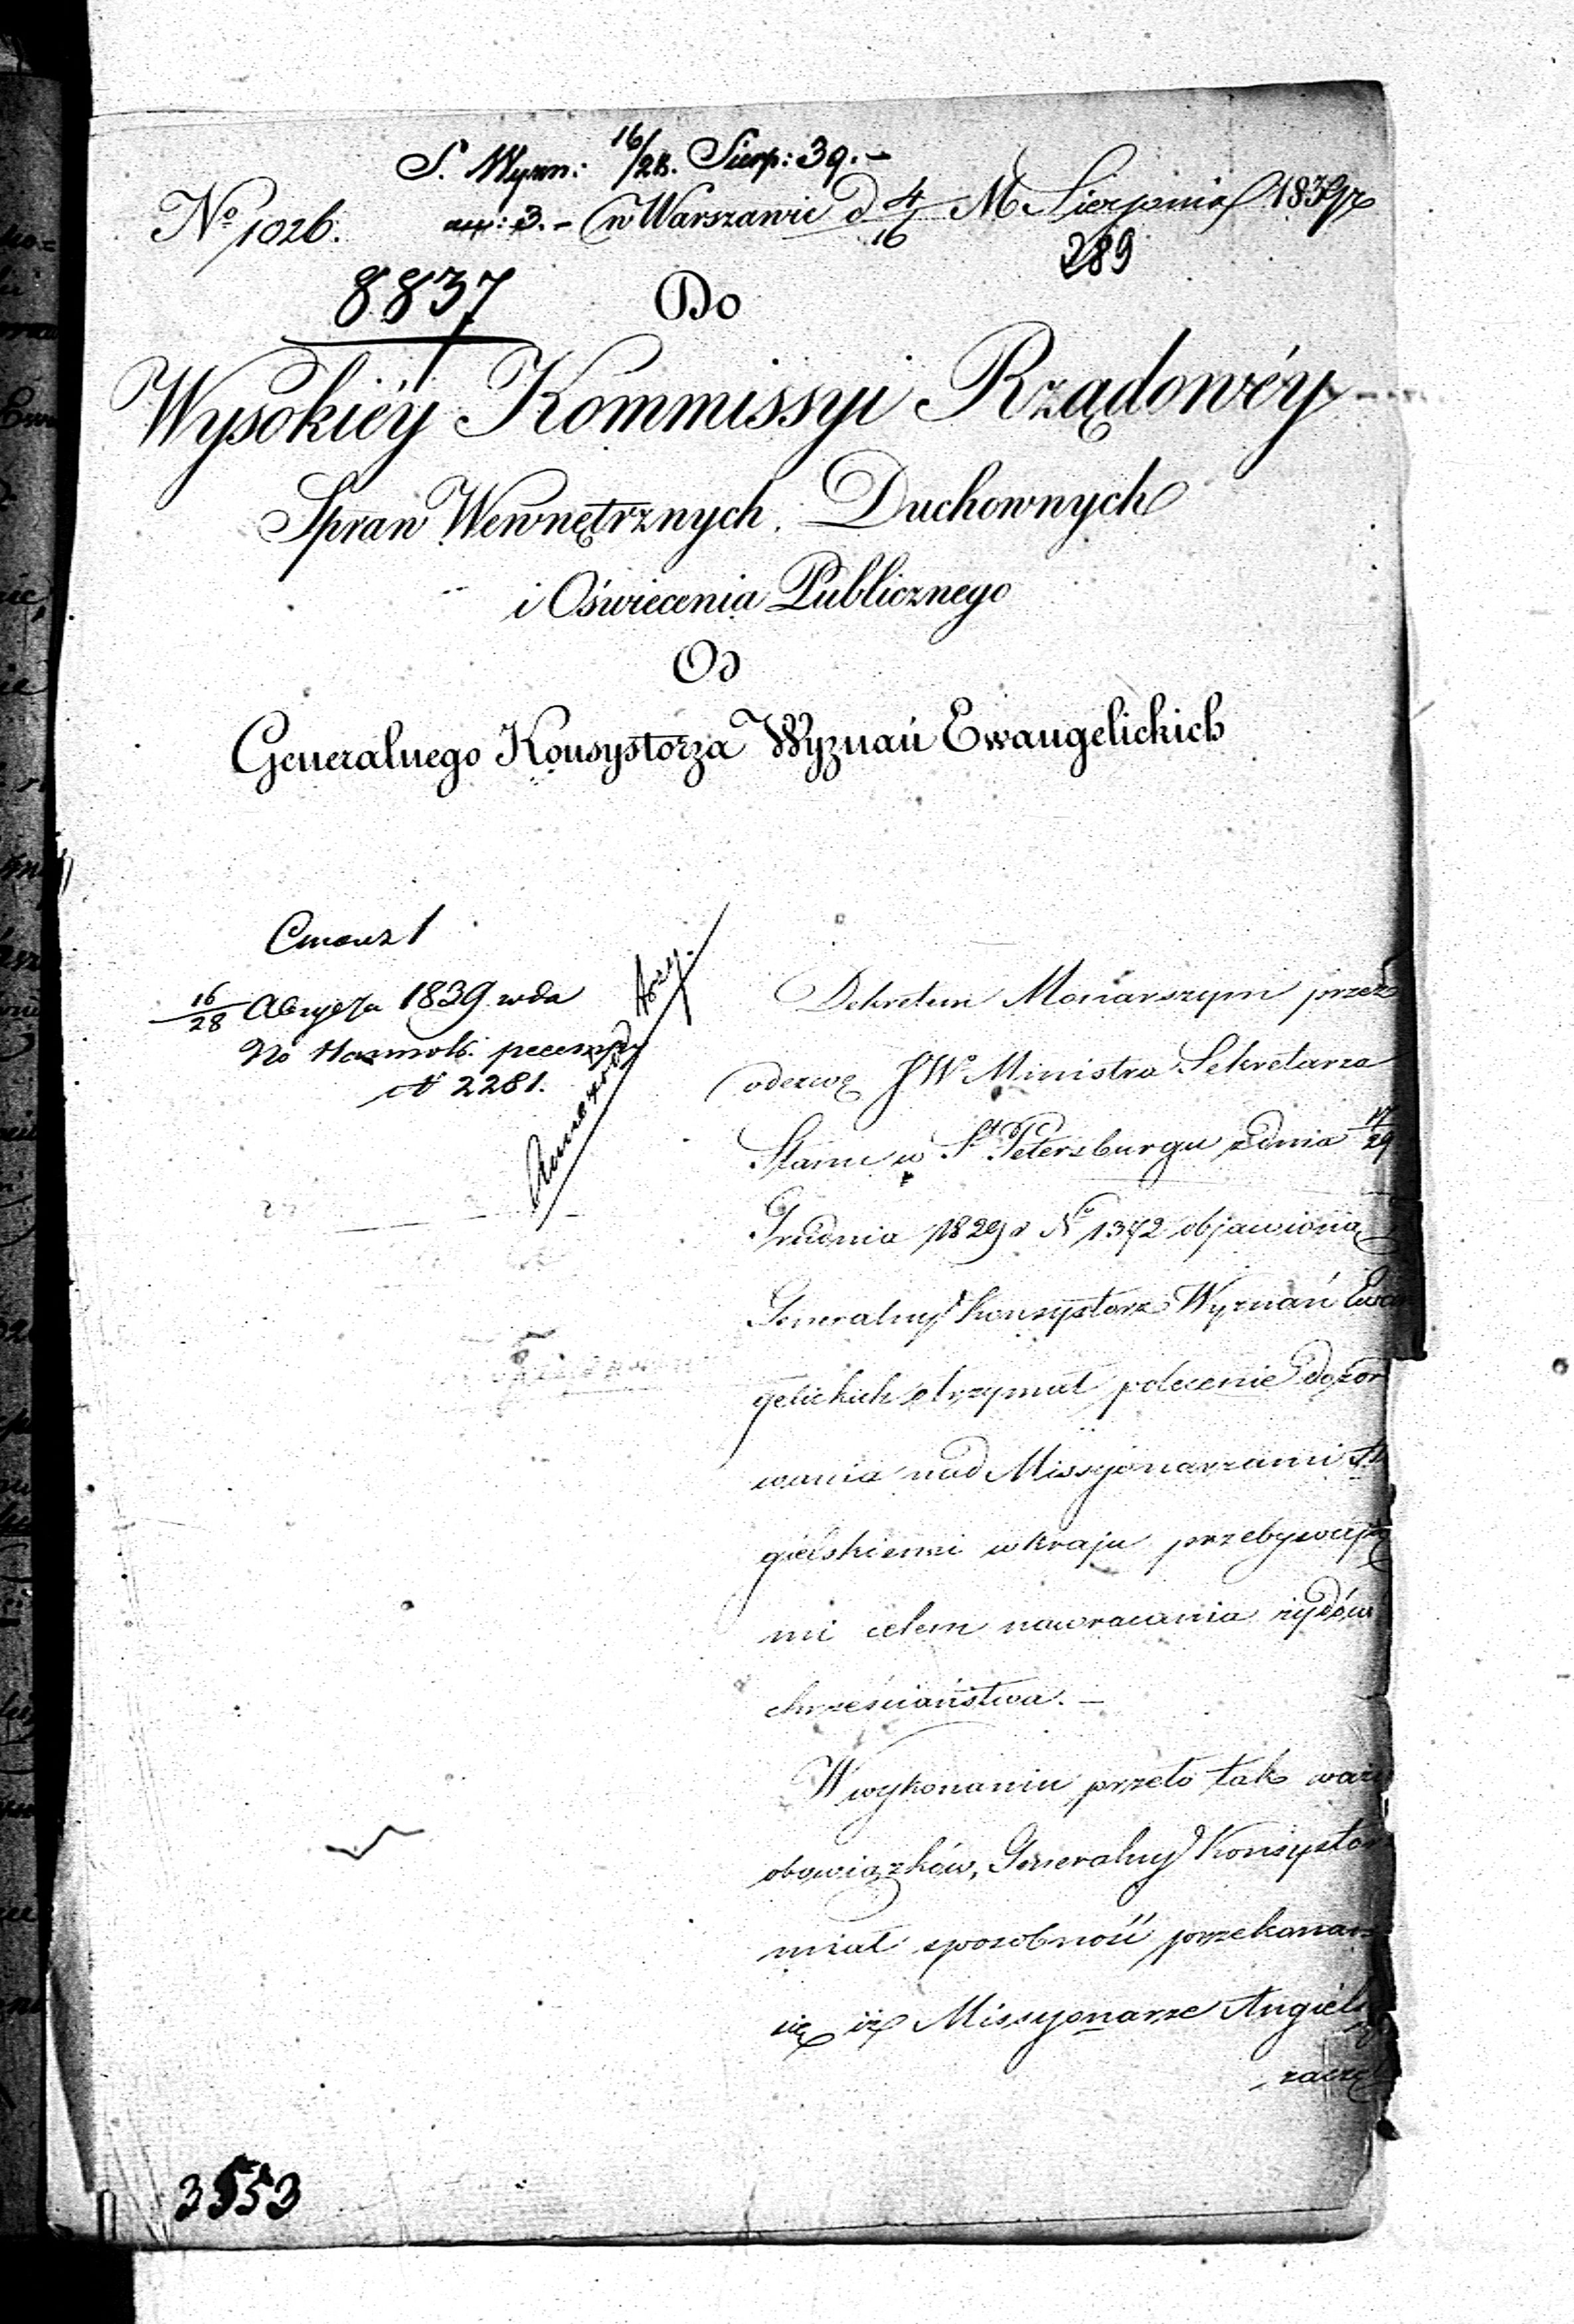 S. Wyzn: 16/28. Sierp: 39. –
No 1026. ann: 3. – w Warszawie d 4/16 M Sierpnia 1839 r
289
8837
Do
Wysokiéy Kommissyi Rządowéy
Spraw Wewnętrznych, Duchownych
i Oświecenia Publicznego
Od
Generalnego Konsystorza Wyznań Ewangelickich
16/28 1839 года
По
№ 2281.
Dekretem Monarszym przez
odezwę JW Ministra Sekretarza
Stanu w St Petersburgu z dnia 17/29
Grudnia 1829 r No 1372 objawioną
Generalny Konsystorz Wyznań Ewan
gelickich otrzymał polecenie dozor
wania nad Missyonarzami An
gielskiemi w kraju przebywają
mi celem nawracania żydów
chrześciaństwa. –
W wykonaniu przeto tak waż
obowiązków, Generalny Konsystor
miał sposobność przekonan
się iż Missyonarze Angiels
zaczę
3553